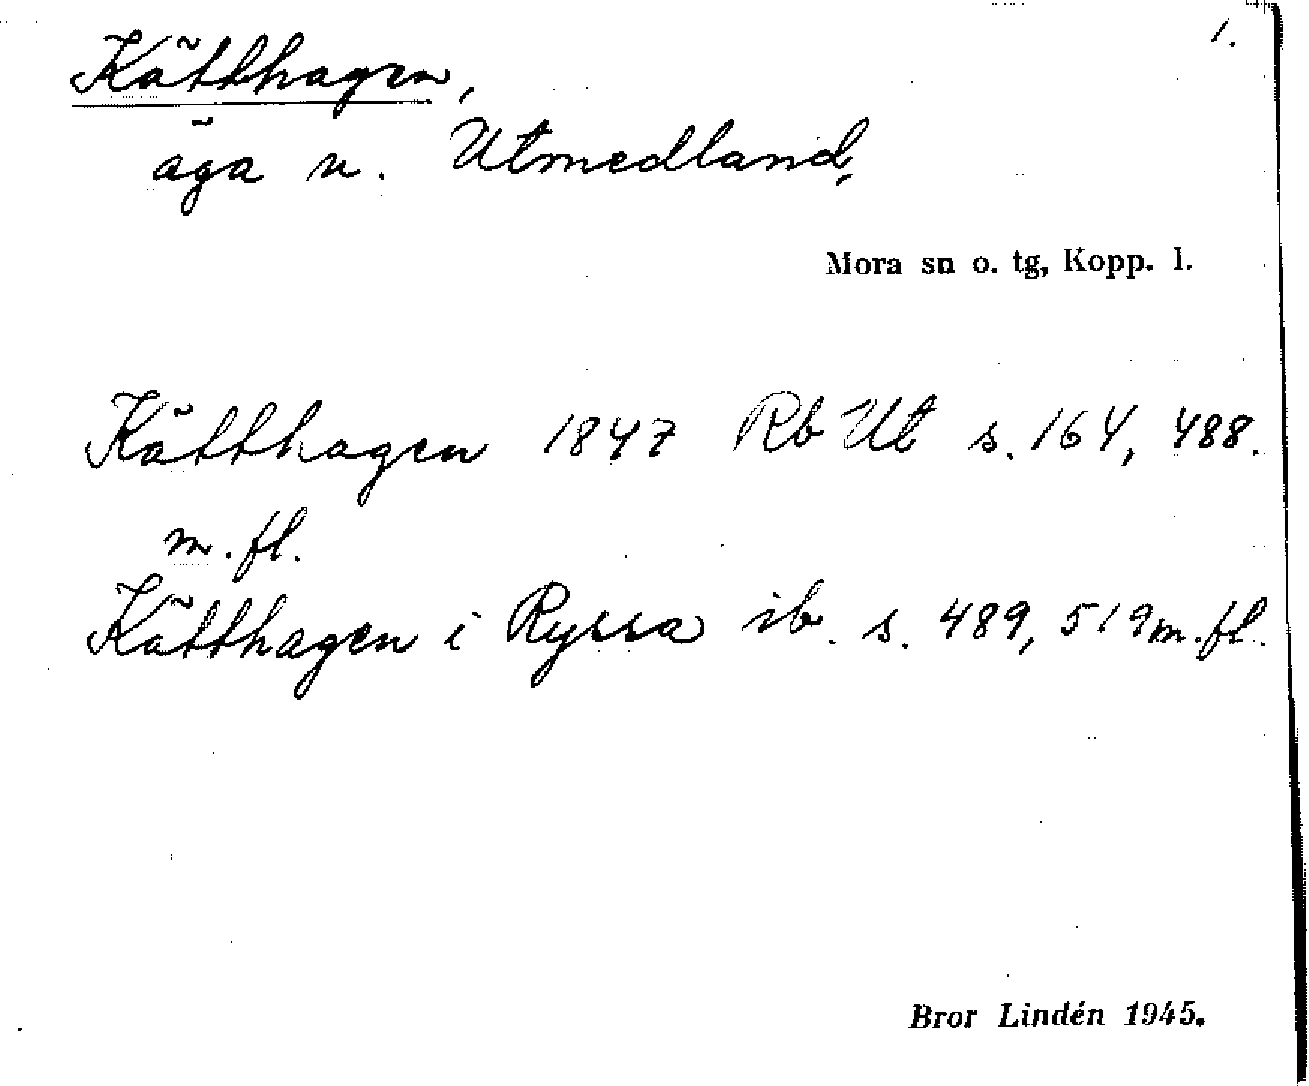 1.
Kätthagen,
äga u. Utmedland,
Mora sn o. tg, Kopp. l.
Kätthagen 1847 Rb Ut s. 164, 488.
m. fl.
Kätthagen i Ryssa ib. s. 489, 519 m. fl.
Bror Lindén 1945.